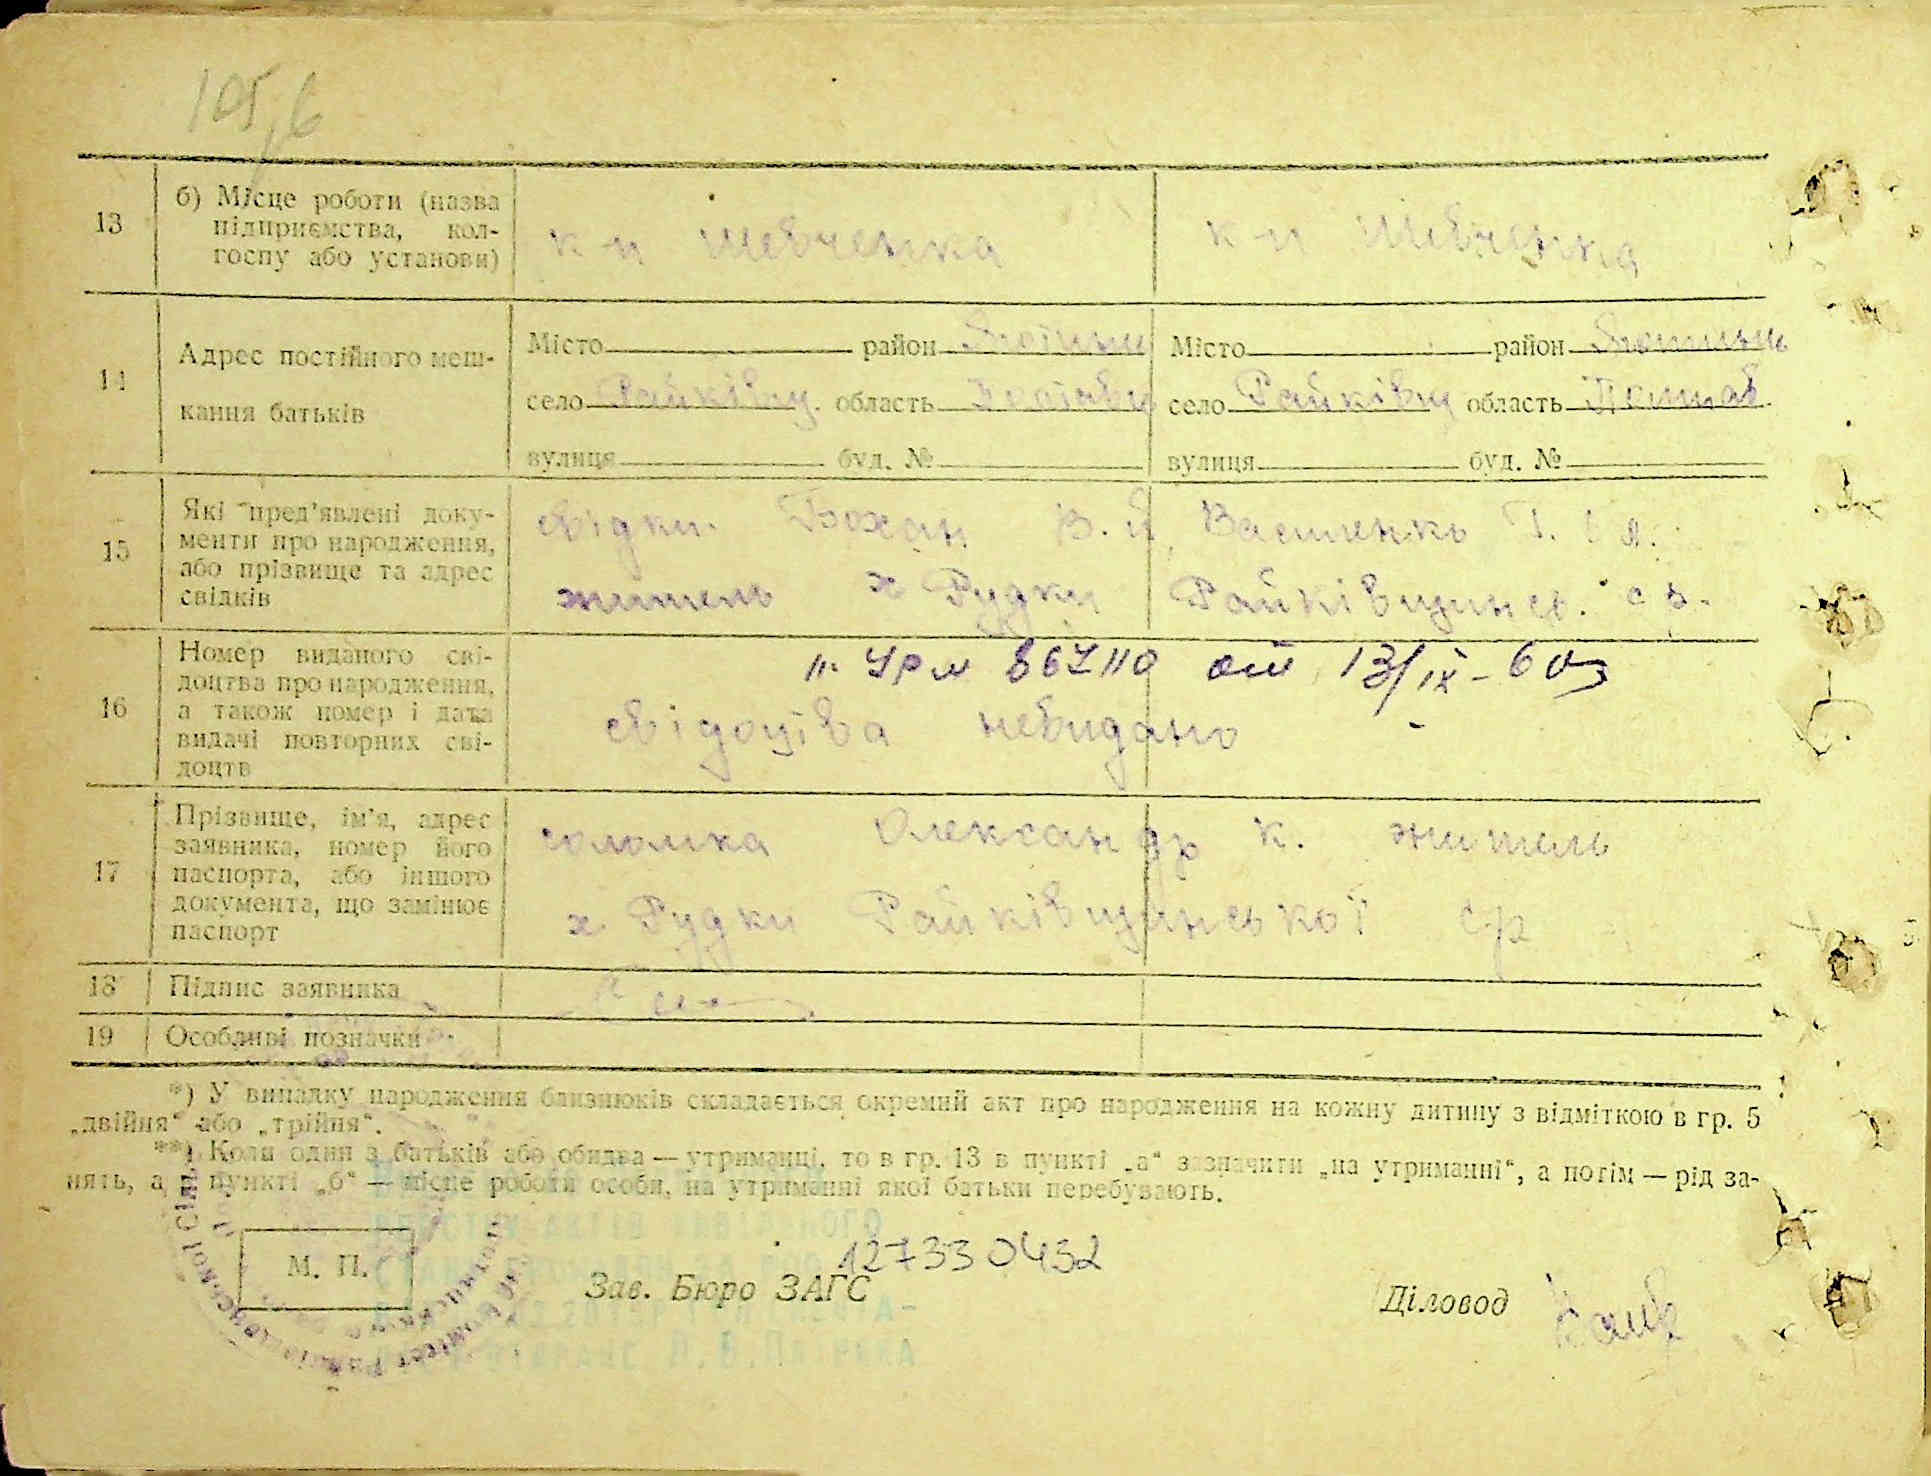 105,6
13
б) Місце роботи (назва
підприємства, кол-
госпу або установи)
к-п Шевченка
к-п Шевченка
14
Адрес постійного меш-
кання батьків
Місто район
село Райківщ. область
вулиця буд. №
Місто район
село Райківщ область Полтав.
вулиця буд. №
15
Які пред'явлені доку-
менти про народження,
або прізвище та адрес
свідків
свідки. Бохан В. Й, Василенко Т. і я.
житель х Рудки Райківщинсь. с р.
16
Номер виданого сві-
доцтва про народження,
а також номер і дата
видачі повторних сві-
доцтв
от 13/IX-60
свідоцтва невидано
17
Прізвище, ім'я, адрес
заявника, номер його
паспорта, або іншого
документа, що замінює
паспорт
соломка Олександр К. житель
х. Рудки Райківщинської ср
18 Підпис заявника
19 Особливі позначки
*) У випадку народження близнюків складається окремий акт про народження на кожну дитину з відміткою в гр. 5
„двійня“ або „трійня“.
**) Коли один з батьків або обидва — утриманці, то в гр. 13 в пункті „а“ зазначити „на утриманні“, а потім — рід за-
нять, а в пункті „б“ — місце роботи особи, на утриманні якої батьки перебувають.
М. П.
127330432
Зав. Бюро ЗАГС
Діловод